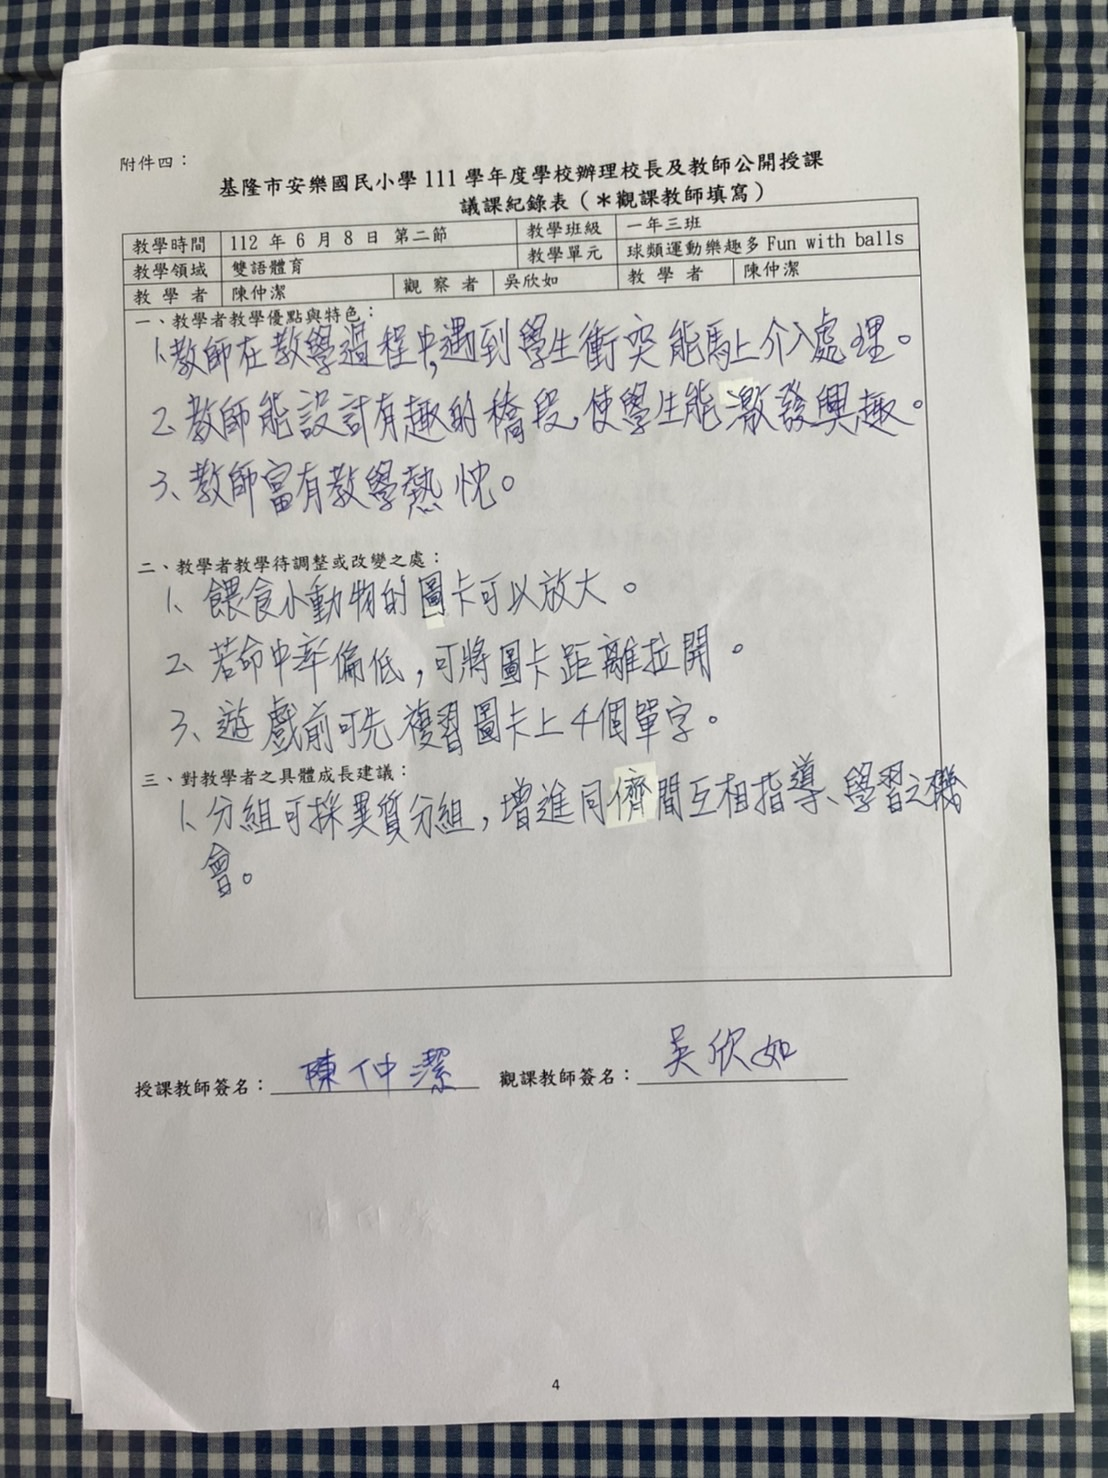 附件四：
基隆市安樂國民小學 111 學年度學校辦理校長及教師公開授課
議課紀錄表（＊觀課教師填寫）
教學時間 112 年 6 月 8 日 第二節 教學班級 一年三班
教學領域 雙語體育 教學單元 球類運動樂趣多 Fun with balls
教 學 者 陳仲潔 觀 察 者 吳欣如 教 學 者 陳仲潔
一、教學者教學優點與特色：
1.教師在教學過程中,遇到學生衝突能馬上介入處理。
2、教師能設計有趣的橋段,使學生能激發興趣。
3、教師富有教學熱忱。
二、教學者教學待調整或改變之處：
1、餵食小動物的圖卡可以放大。
2、若命中率偏低，可將圖卡距離拉開。
3、遊戲前可先複習圖卡上4個單字。
三、對教學者之具體成長建議：
1、分組可採異質分組，增進同儕間互相指導、學習之機
會。
授課教師簽名：陳仲潔 觀課教師簽名：吳欣如
4